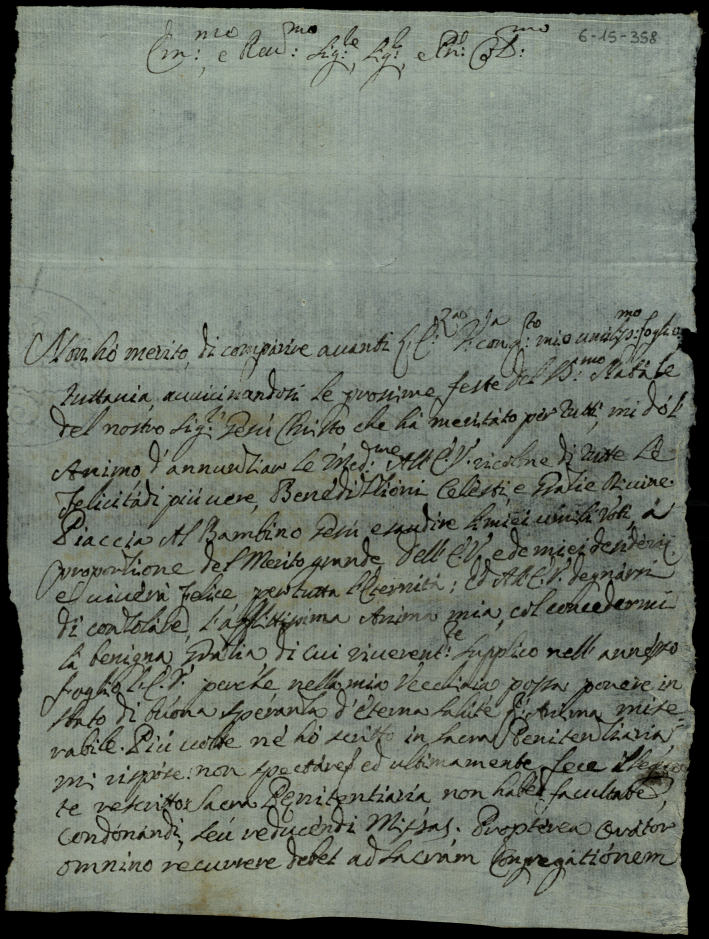 6-15-358
Em:mo e Rev:mo Sig:re Sig:re, e Pn: Col:mo
Non hò merito, di comparire avanti l'E:za R:ma V:ra con q:to mio umiliss:mo foglio:
tuttavia, avvicinandosi le prossime feste del S:mo Natale
del nostro Sig:re Gesù Christo che hà meritato per tutti, mi dò l'
Animo d'annunziar le Med:me All'E.V. ricolme di tutte le
felicità di più vere, Benedizzioni Celesti, e Grazie Divine.
Piaccia Al Bambino Gesù esaudire li miei umili voti, à
proportione del Merito grande dell'E.V. e de miei desiderij
e viverà felice per tutta l'Eternità; ed All'E.V. degnarsi
di consolare l'afflittissima Anima mia, col concedermi
la benigna Grazia, di cui riverent:te supplico nell'annesso
foglio l'E.V. perche nella mia Vecchiaia possa ponere in
stato di buona speranza d'eterna salute l'Anima mise-
rabile. Più volte nè hò scritto in Sacra Penitenziaria
mi rispose: non spectare; ed ultimamente fece il seguen
te rescritto: Sacra Penitentiaria non habet facultatem
condonandi, seù reducendi Missas. Propterea Orator
omnino recurrere debet ad Sacram Congregationem